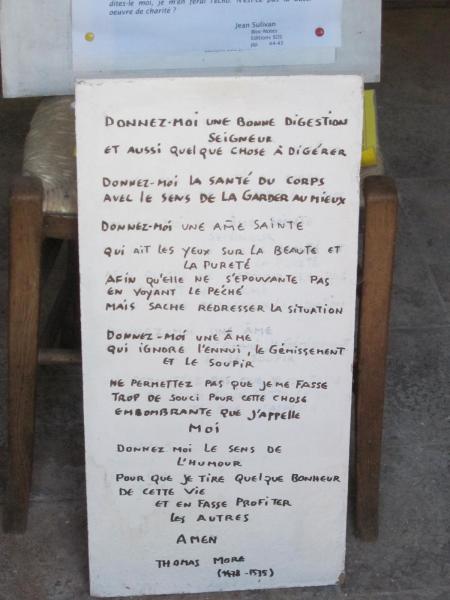 dites-le moi, je m'en ferai l'écho. N'est-ce pas la
oeuvre de charité ?
Jean Sulivan
Bloc-Notes
Editions SOS
pp 44-45
DONNEZ-MOI UNE BONNE DIGESTION
SEIGNEUR
ET AUSSI QUELQUE CHOSE À DIGÉRER
DONNEZ-MOI LA SANTÉ DU CORPS
AVEC LE SENS DE LA GARDER AU MIEUX
DONNEZ-MOI UNE AME SAINTE
QUI AIT LES YEUX SUR LA BEAUTE ET
LA PURETÉ
AFIN QU'ELLE NE S'EPOUVANTE PAS
EN VOYANT LE PÉCHÉ
MAIS SACHE REDRESSER LA SITUATION
DONNEZ-MOI UNE ÂME
QUI IGNORE L'ENNUI, LE GÉMISSEMENT
ET LE SOUPIR
NE PERMETTEZ PAS QUE JE ME FASSE
TROP DE SOUCI POUR CETTE CHOSE
EMBOMBRANTE QUE J'APPELLE
MOI
DONNEZ MOI LE SENS DE
L'HUMOUR
POUR QUE JE TIRE QUELQUE BONHEUR
DE CETTE VIE
ET EN FASSE PROFITER
LES AUTRES
AMEN
THOMAS MORE
(1478-1535)